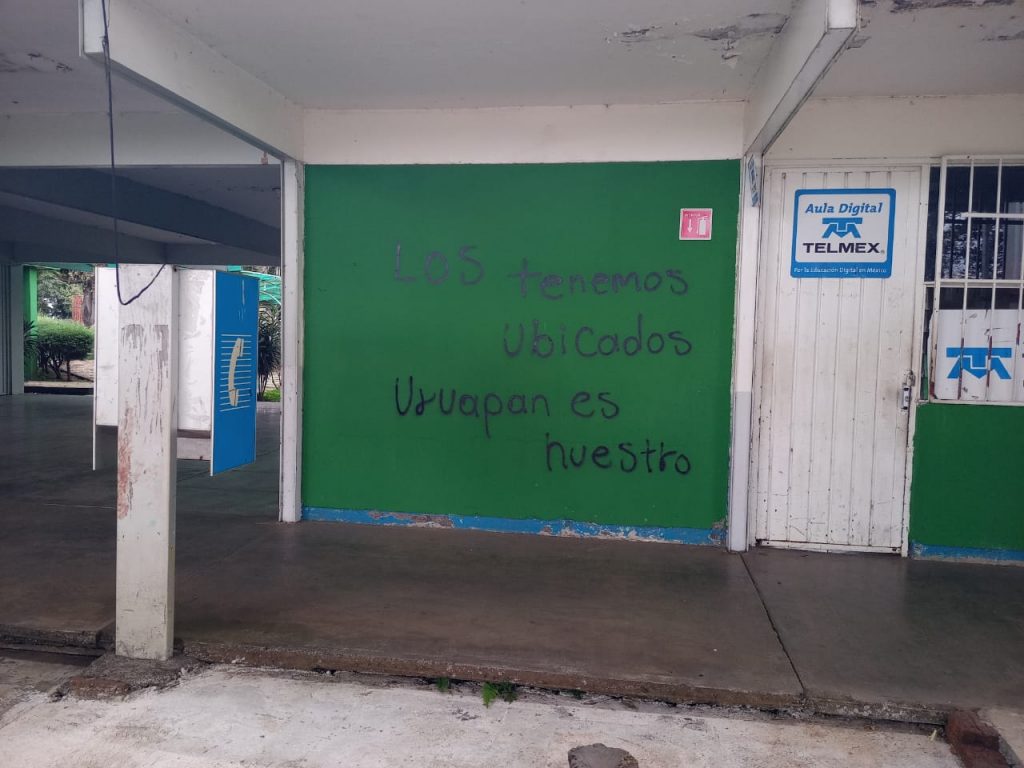 Los tenemos
ubicados
Uruapan es
nuestro
Aula Digital
TELMEX®
Por la Educación Digital en México